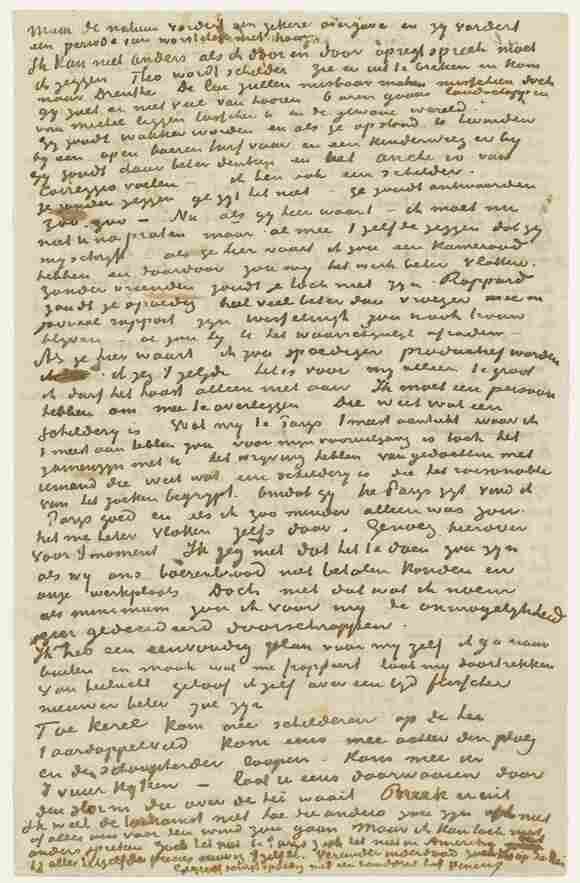 Maar de natuur vordert een zekere overgave en zij vordert
een periode van worstelen met haar.
Ik kan niet anders als ik door en door opregt spreek moet
ik zeggen Theo wordt schilder zie er uit te breken en kom
naar Drenthe De lui zullen misbaar maken misschien doch
gij zult er niet veel van hooren
gij zoudt wakker worden en als je opstond te
bij een open boeren turf vuur en een kinderwieg er bij
gij zoudt daar beter denken en het anche io van
Correggio voelen – ik ben ook een schilder.
Ze zouden zeggen ge zijt het niet – ge zoudt antwoorden
zoo-zoo – Nu als gij hier waart – ik moet nu
niet u napraten maar al mee 't zelfde zeggen dat gij
mij schrijft als ge hier waart ik zou een kameraad
hebben en daardoor zou mij het werk beter vlotten.
Zonder vrienden zoudt ge toch niet zijn. Rappard
zoudt ge spoedig heel veel beter dan vroeger mee in
rapport zijn werkelijk zou nooit trouw
blijven – en zou bij u het
Als ge hier waart ik zou spoediger productief worden
ik zeg 't zelfde het is voor mij alleen te groot
ik durf het haast alleen niet aan Ik moet een persoon
hebben om mee te overleggen Die weet wat een
schilderij is Wat mij te Parijs 't meest aantrekt waar ik
't meest aan hebben zou voor mijn vooruitgang is toch het
zamenzijn met u het wrijving hebben van gedachten met
iemand die weet wat een schilderij is die het raisonnable
van het zoeken begrijpt. Omdat gij te Parijs zijt vind ik
Parijs goed en als ik zoo minder alleen was zou
het me beter vlotten zelfs daar. Genoeg hierover
voor 't moment Ik zeg niet dat het te doen zou zijn
als wij ons boerenbrood niet betalen konden en
onze werkplaats Doch met dat wat ik noem
als minimum zou ik voor mij de onmogelijkheid
zeer gedecideerd doorschrappen.
Ik heb een eenvoudig plan voor mij zelf ik ga naar
buiten en maak wat me frappeert laat mij doortrekken
van heilucht geloof ik zelf over een tijd frisscher
nieuwer beter zie zijn
Toe kerel kom mee schilderen op de hei
't aardappelveld kom eens mee achter den ploeg
en den schaapherder loopen – kom mee in
't vuur kijken – laat u eens doorwaaien door
den storm die over de hei waait. Breek er uit
Ik weet de toekomst niet hoe die anders zou zijn of niet
of alles ons voor den wind zou gaan Maar ik kan toch niet
anders spreken zoek het niet te Parijs zoek het niet in Amerika
het is alles altijd precies eeuwig 't zelfde. Verander inderdaad zoek het op de hei